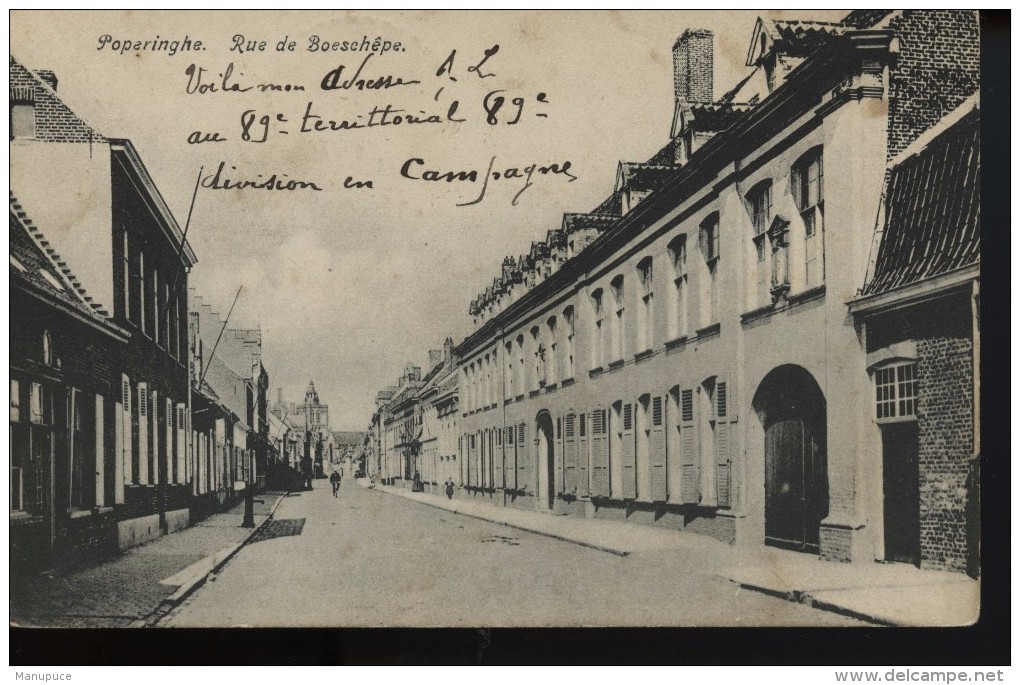 Poperinghe. Rue de Boeschêpe.
Voilà mon Adresse A. L
au 89e territtorial 89e
division en Campagne
Manupuce
www.delcampe.net